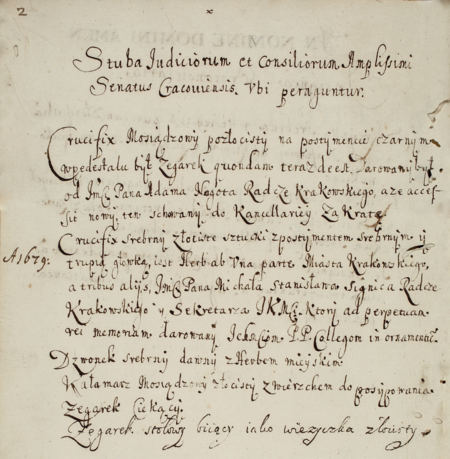 2
Stuba Iudiciorum et Consiliorum Amplissimi
Senatus Cracouiensis. Vbi peraguntur.
Crucifix Mosiądzowy pozłocisty na postymencie czarnym
wpedestalu był Zegarek quondam teraz deest, Darowany był
od Jmć Pana Adama Nagota Radcze Krakowskiego, a ze accef-
sie nowy, ten schowany do Kancellariey za Kratę
A 1679. Crucifix srebrny złociste sztucki z postymentem srebrnym y
trupią głowką, iest Herb ab Vna parte Miasta Krakowskiego,
a tribus alijs, Jmć Pana Michala Stanisława Signica Radcze
Krakowskiego y Sekretarza J.K.Mći. Ktory ad perpetuam
rei memoriam darowany Ichmciom P.P. Collegom in ornament:
Dzwonek srebrny dawny z Herbem mieyskim.
Kałamarz Mosiądzowy złocisty z wierzchem do posypowania
Zegarek Ciekący.
Zegarek stołowy biiący iako wiezyczka złocisty